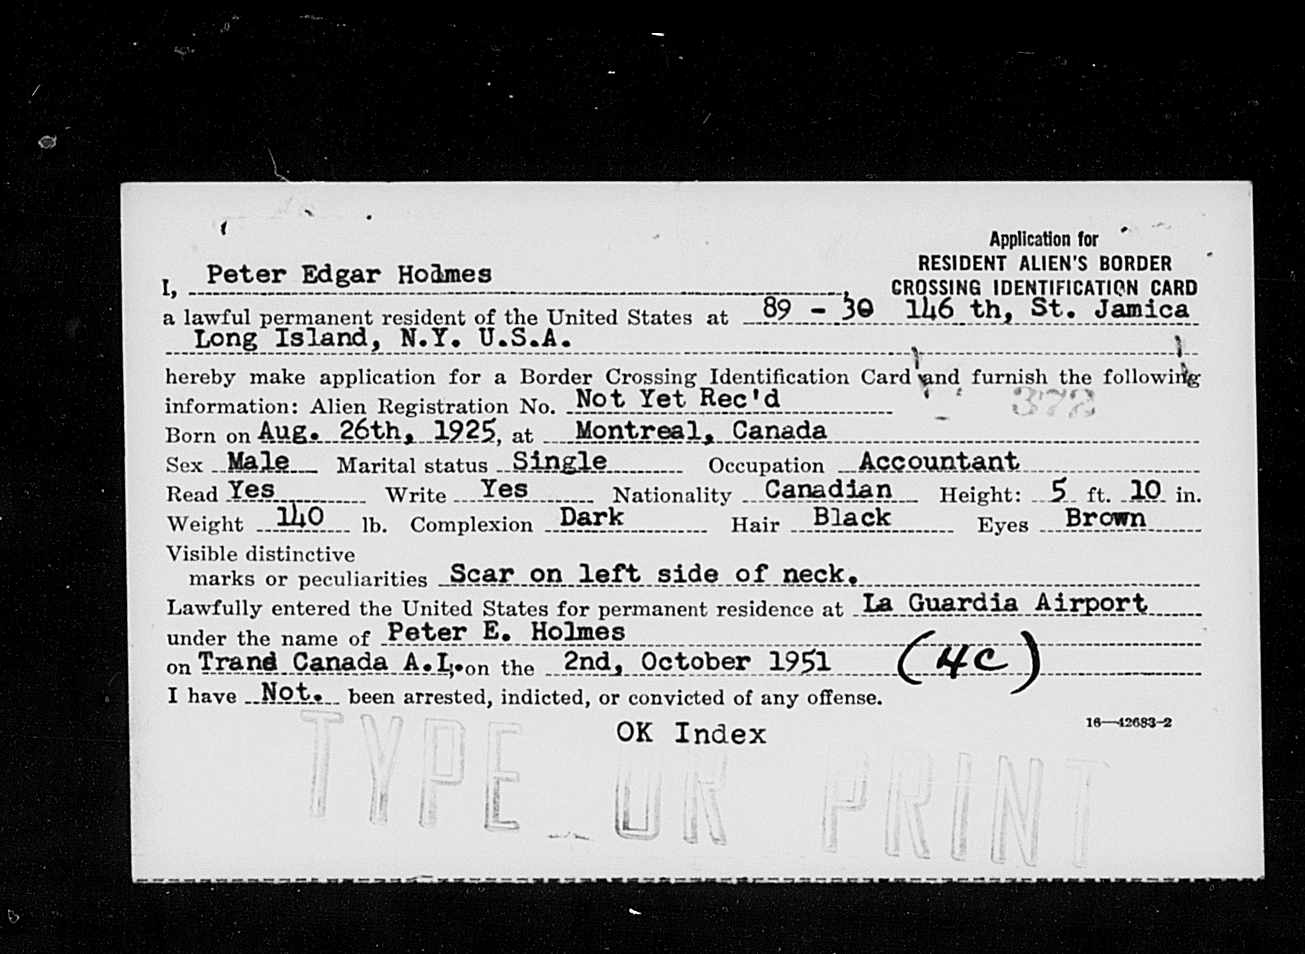 Application for
RESIDENT ALIEN'S BORDER
CROSSING IDENTIFICATION CARD
I, Peter Edgar Holmes,
a lawful permanent resident of the United States at 89 - 30 146 th, St. Jamica
Long Island, N.Y. U.S.A.
hereby make application for a Border Crossing Identification Card and furnish the following
information: Alien Registration No. Not Yet Rec'd 372
Born on Aug. 26th, 1925, at Montreal, Canada
Sex Male Marital status Single Occupation Accountant
Read Yes Write Yes Nationality Canadian Height: 5 ft. 10 in.
Weight 140 lb. Complexion Dark Hair Black Eyes Brown
Visible distinctive
marks or peculiarities Scar on left side of neck.
Lawfully entered the United States for permanent residence at La Guardia Airport
under the name of Peter E. Holmes
on Trand Canada A.L. on the 2nd, October 1951 (4C)
I have Not. been arrested, indicted, or convicted of any offense.
OK Index
16—42683-2
TYPE OR PRINT